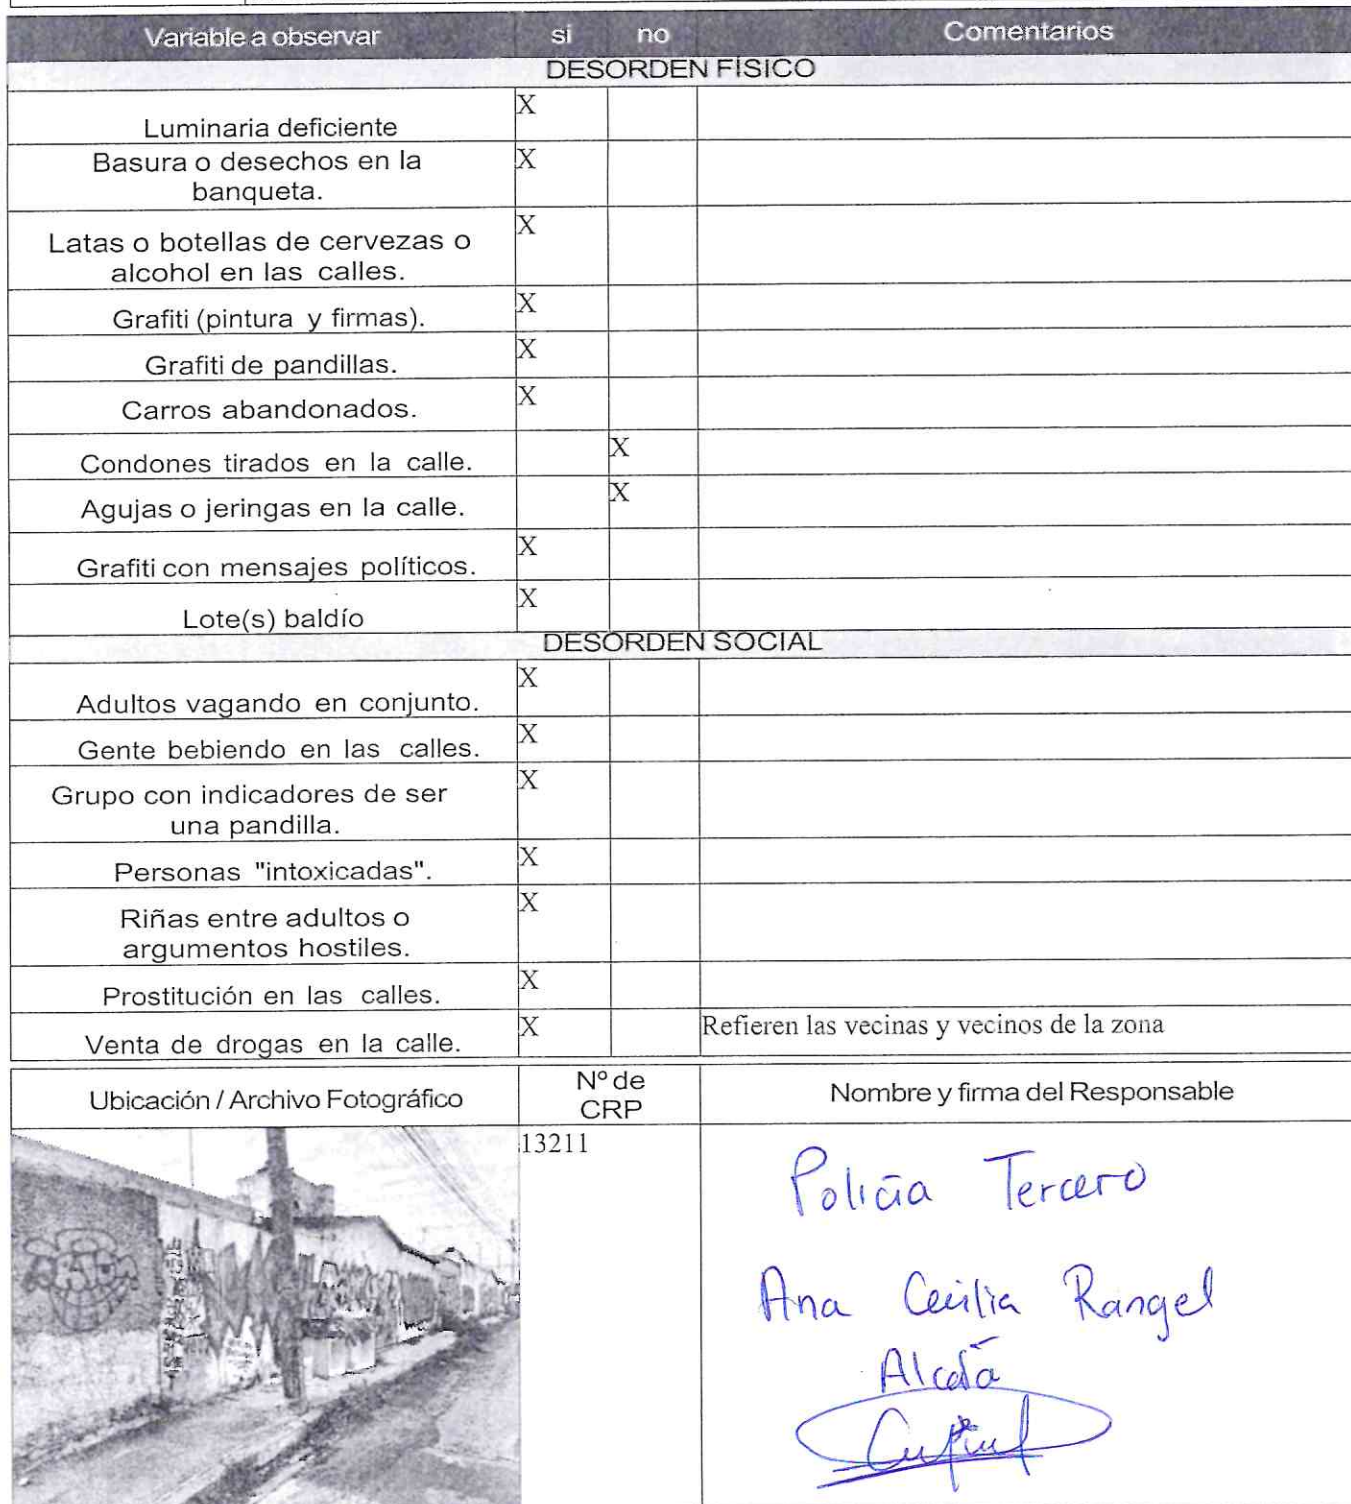 Variable a observar si no Comentarios
DESORDEN FÍSICO
Luminaria deficiente X
Basura o desechos en la X
banqueta.
Latas o botellas de cervezas o X
alcohol en las calles.
Grafiti (pintura y firmas). X
Grafiti de pandillas. X
Carros abandonados. X
Condones tirados en la calle. X
Agujas o jeringas en la calle. X
Grafiti con mensajes políticos. X
Lote(s) baldío X
DESORDEN SOCIAL
Adultos vagando en conjunto. X
Gente bebiendo en las calles. X
Grupo con indicadores de ser X
una pandilla.
Personas "intoxicadas". X
Riñas entre adultos o X
argumentos hostiles.
Prostitución en las calles. X
Venta de drogas en la calle. X Refieren las vecinas y vecinos de la zona
Ubicación / Archivo Fotográfico Nº de Nombre y firma del Responsable
CRP
13211
Policía Tercero
Ana Cecilia Rangel